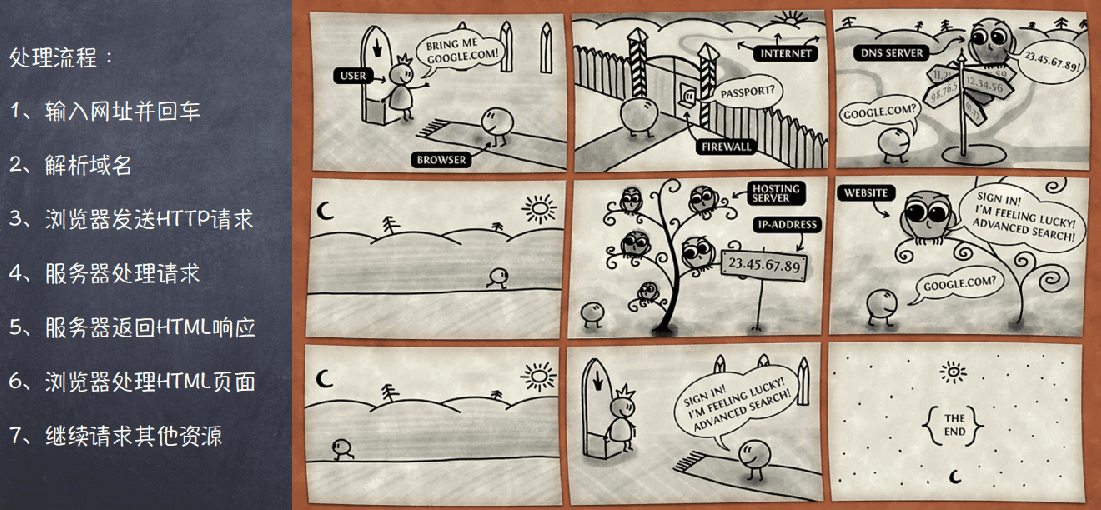 处理流程：
1、输入网址并回车
2、解析域名
3、浏览器发送HTTP请求
4、服务器处理请求
5、服务器返回HTML响应
6、浏览器处理HTML页面
7、继续请求其他资源
BRING ME
GOOGLE.COM!
USER
BROWSER
INTERNET
PASSPORT?
FIREWALL
DNS SERVER
23.45.67.89!
12.34.56
98.76.5
GOOGLE.COM?
HOSTING
SERVER
IP-ADDRESS
23.45.67.89
WEBSITE
SIGN IN!
I'M FEELING LUCKY!
ADVANCED SEARCH!
GOOGLE.COM?
SIGN IN!
I'M FEELING LUCKY!
ADVANCED SEARCH!
THE
END